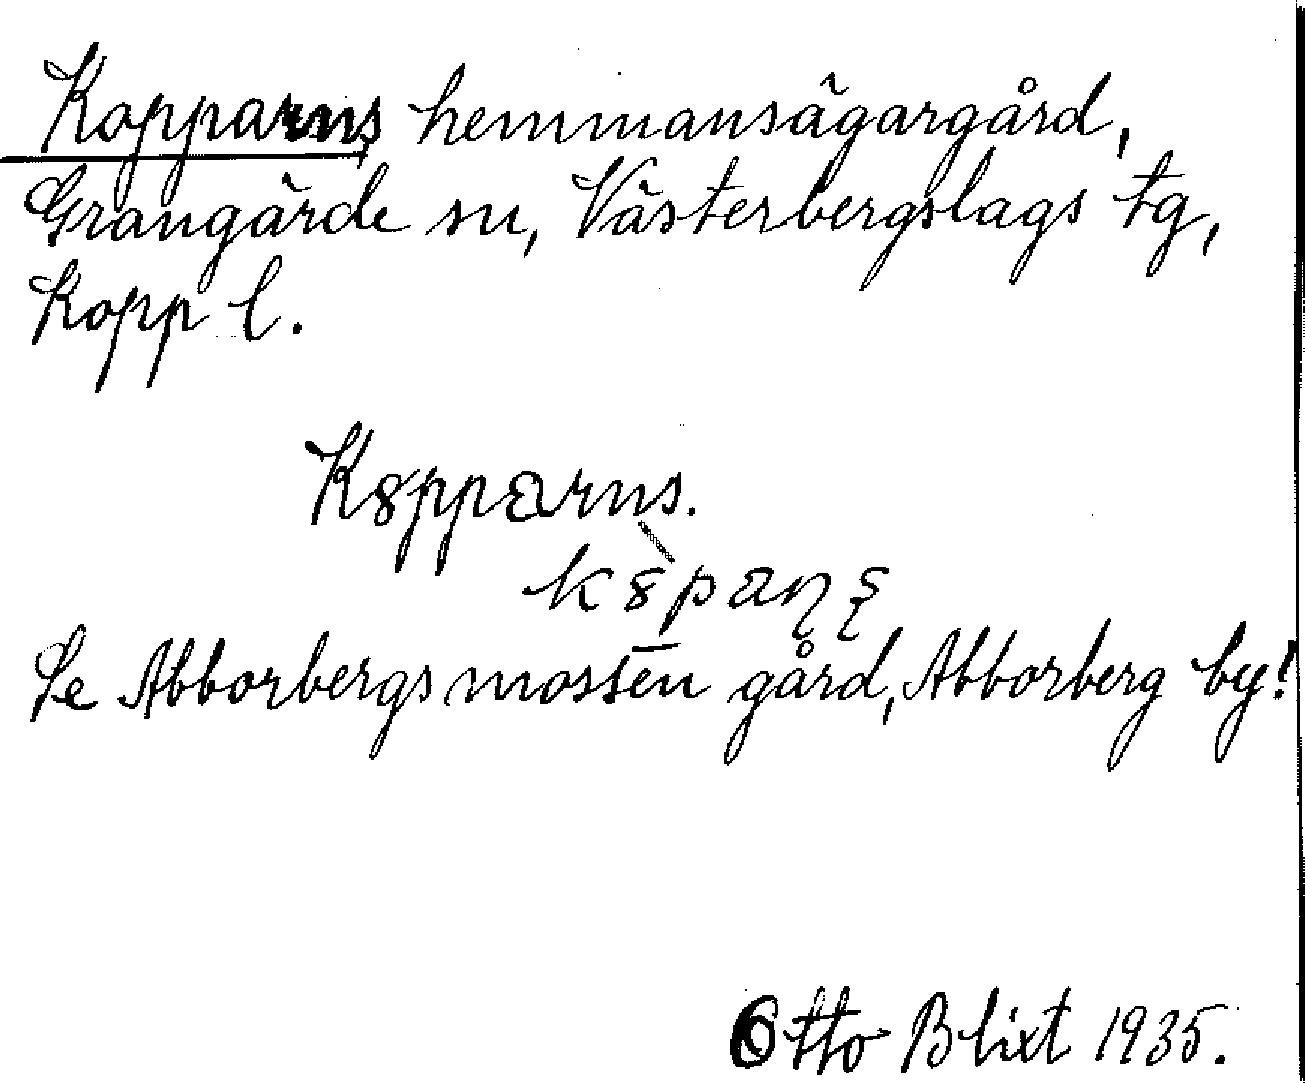 Kopparns hemmansägargård,
Grangärde sn, Västerbergslags tg,
Kopp l.
Kȣpparns.
kȣ̀paɳʂ
Se Abborbergsmossen gård, Abborberg by!
Otto Blixt 1935.